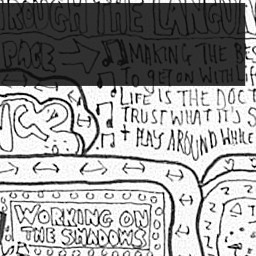 ROUGH THE LANGUA
PAGE
MAKING THE BES
TO GET ON WITH LIF
LIFE IS THE DOCT
TRUST WHAT IT'S S
+ PLAY AROUND WHILE
WORKING ON
THE SHADOWS